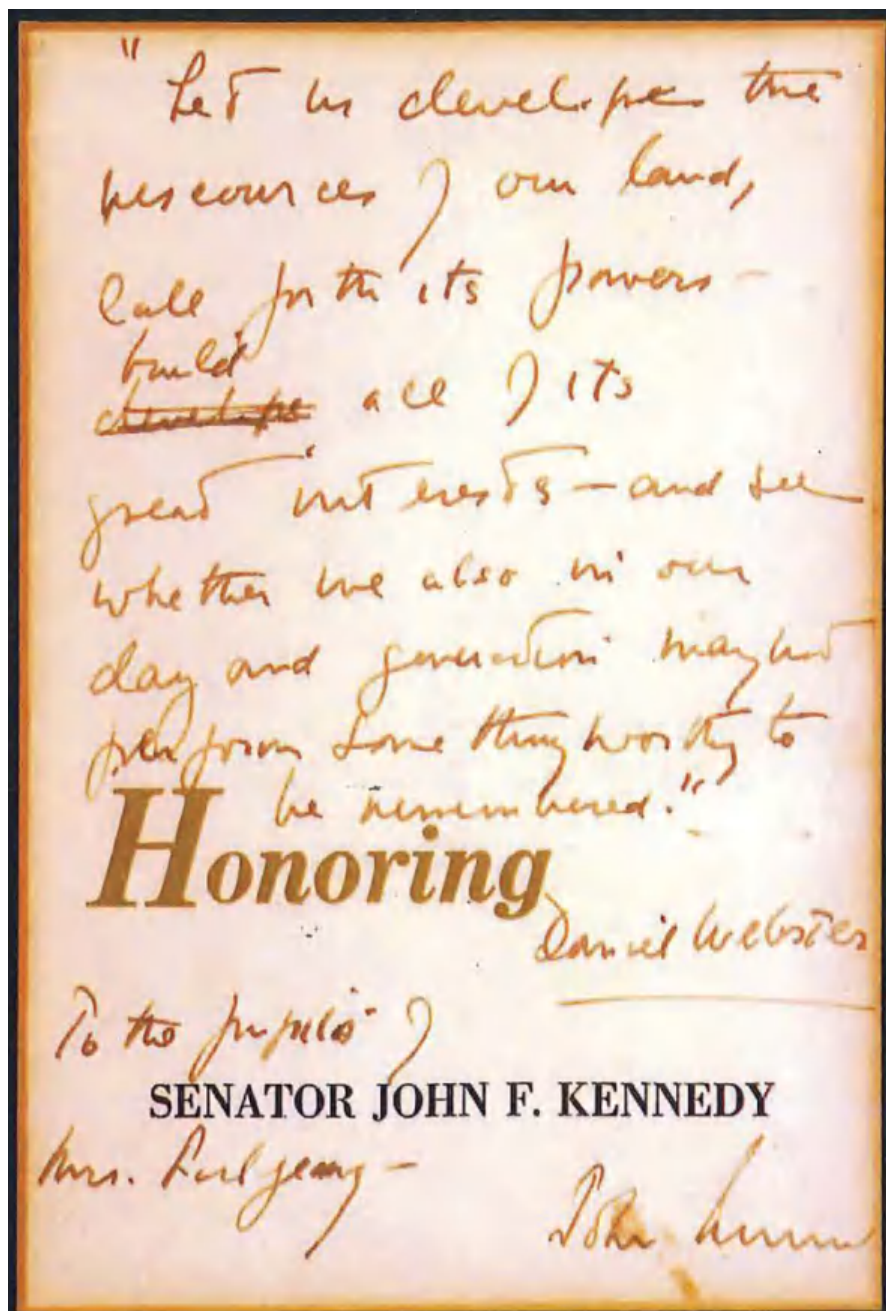 "Let us develope the
rescources of our land,
call forth its powers –
build
develope all of its
great interests – and see
whether we also in our
day and generation may not
perform something worthy to
be remembered."
Honoring
Daniel Webster
To the pupils of
SENATOR JOHN F. KENNEDY
Mrs.
John